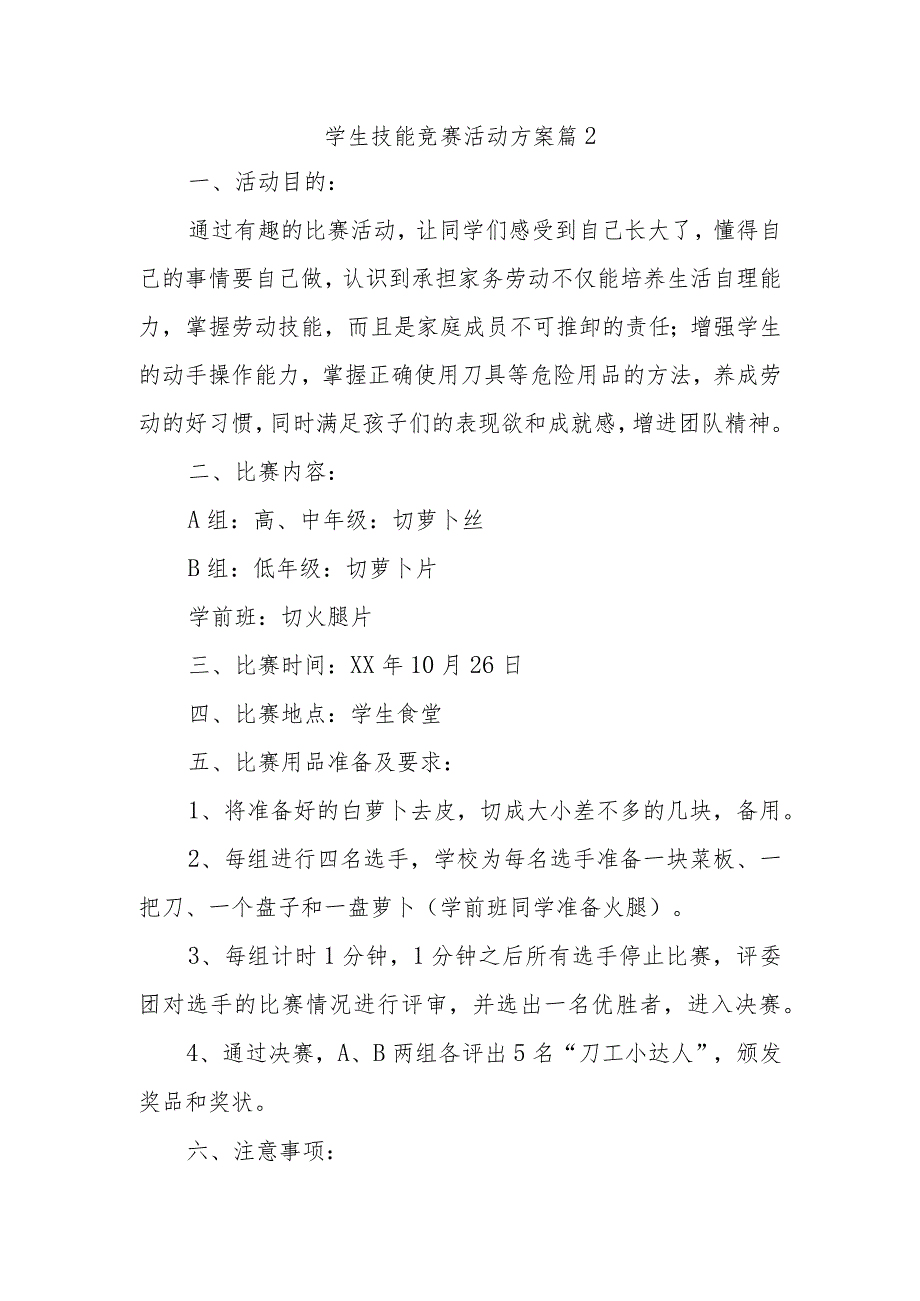 学生技能竞赛活动方案篇2
一、活动目的：
通过有趣的比赛活动，让同学们感受到自己长大了，懂得自
己的事情要自己做，认识到承担家务劳动不仅能培养生活自理能
力，掌握劳动技能，而且是家庭成员不可推卸的责任；增强学生
的动手操作能力，掌握正确使用刀具等危险用品的方法，养成劳
动的好习惯，同时满足孩子们的表现欲和成就感，增进团队精神。
二、比赛内容：
A组：高、中年级：切萝卜丝
B组：低年级：切萝卜片
学前班：切火腿片
三、比赛时间：XX年10月26日
四、比赛地点：学生食堂
五、比赛用品准备及要求：
1、将准备好的白萝卜去皮，切成大小差不多的几块，备用。
2、每组进行四名选手，学校为每名选手准备一块菜板、一
把刀、一个盘子和一盘萝卜（学前班同学准备火腿）。
3、每组计时1分钟，1分钟之后所有选手停止比赛，评委
团对选手的比赛情况进行评审，并选出一名优胜者，进入决赛。
4、通过决赛，A、B两组各评出5名“刀工小达人”，颁发
奖品和奖状。
六、注意事项：